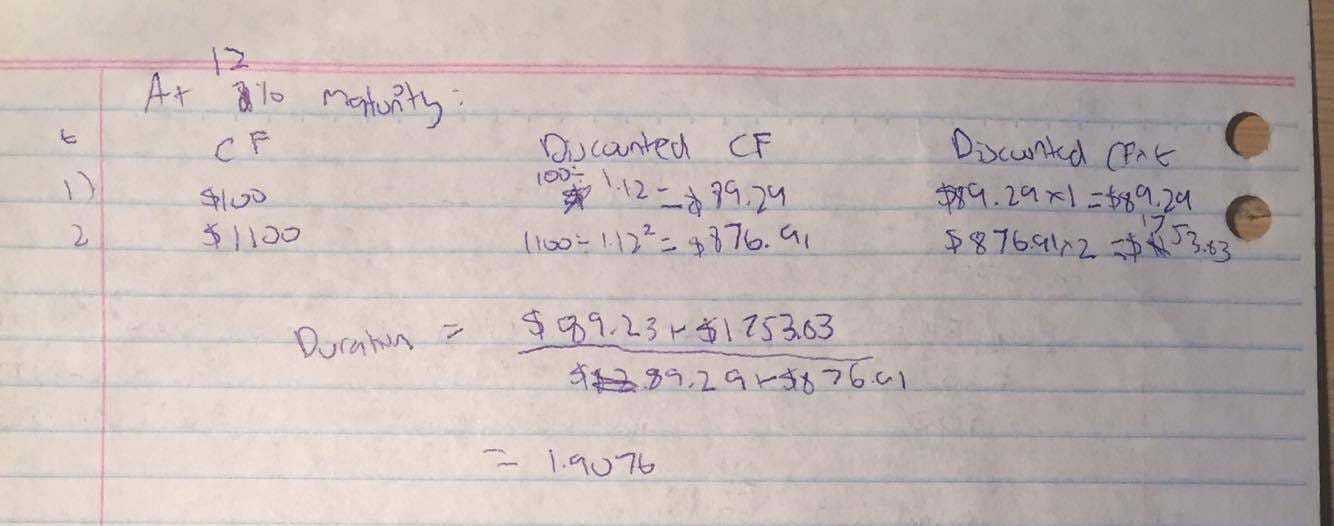 12
At % maturity:
t CF Discounted CF Discounted CF x t
1) $100 100÷ 1.12 = $89.29 $89.29x1 = $89.29
2 $1100 1100÷1.12² = $876.91 $876.91x2 = $1753.83
Duration = $89.23 + $1753.83
$89.29 + $876.91
= 1.9076